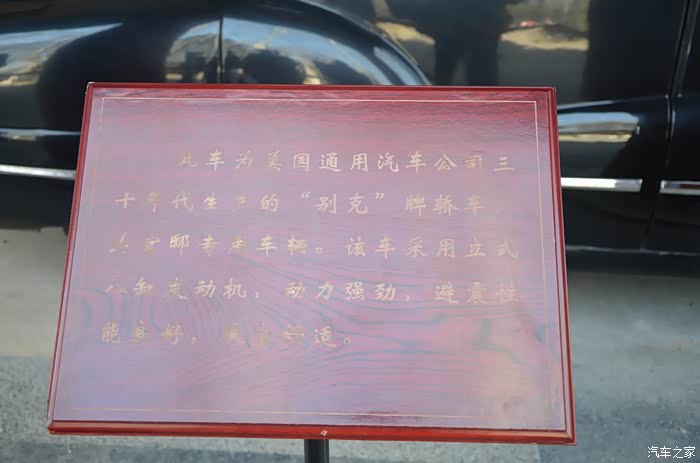 此车为美国通用汽车公司三
十年代生产的“别克”牌轿车，
为官邸专用车辆。该车采用立式
八缸发动机，动力强劲，避震性
能良好，舒适。
汽车之家